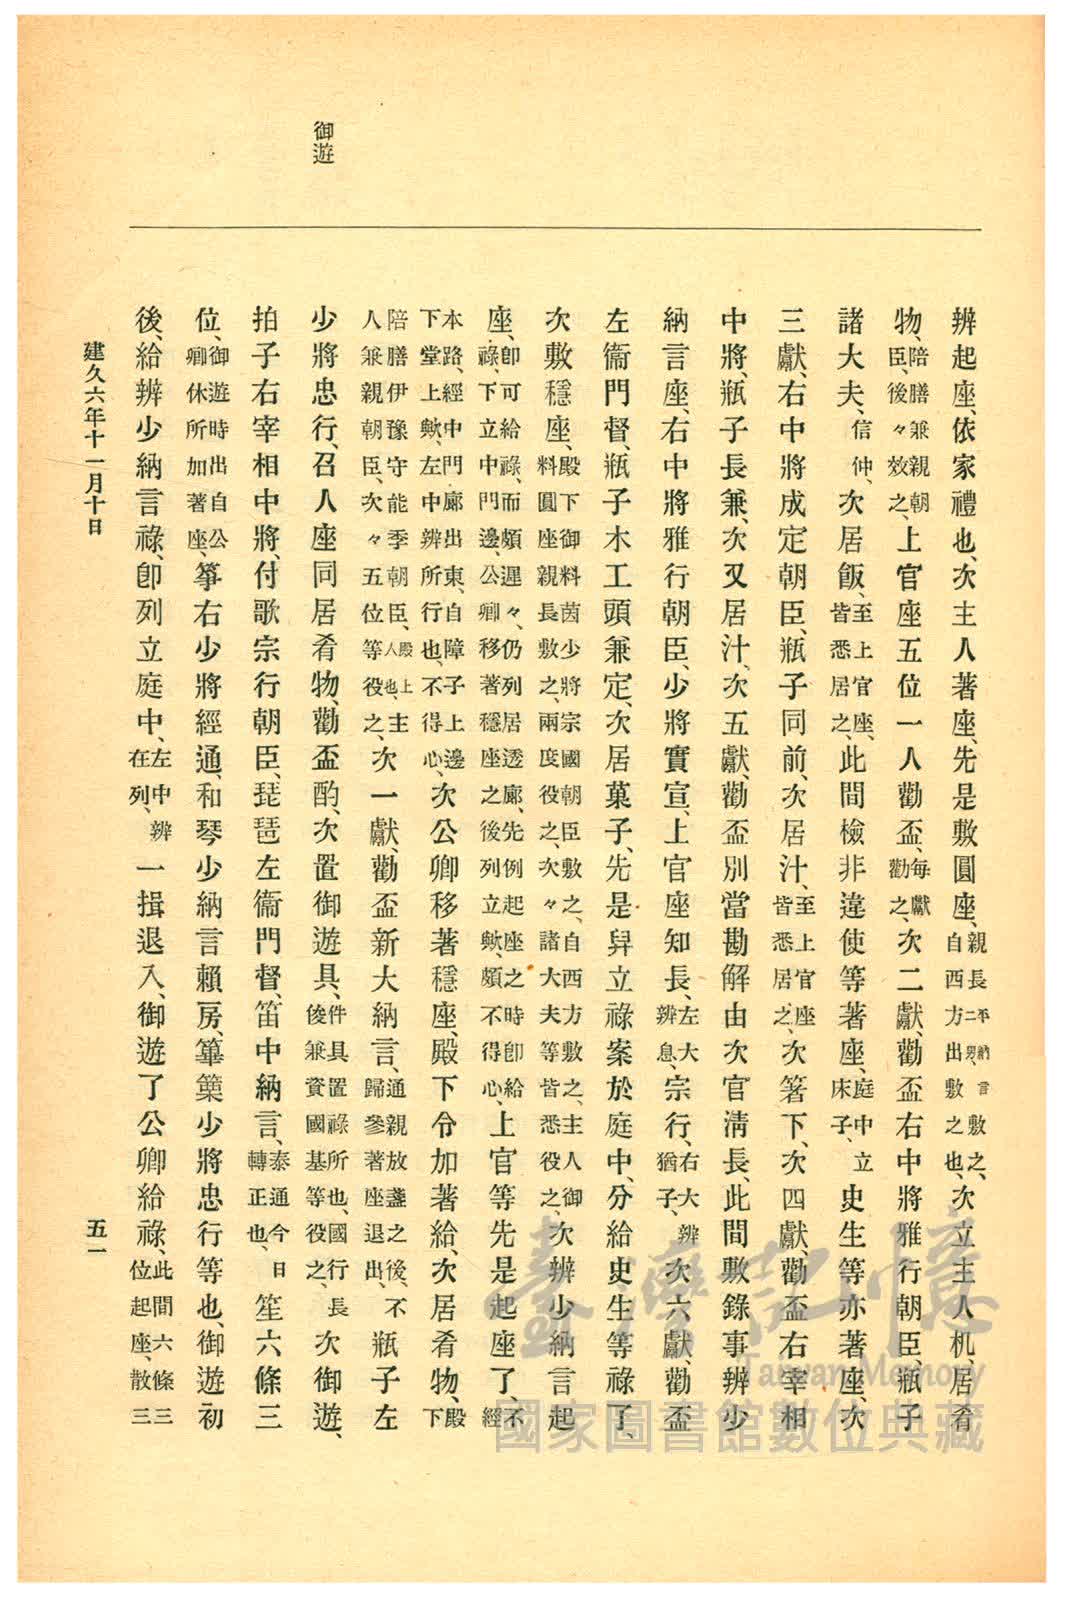 御遊
辨起座、依家禮也、次主人著座、先是敷圓座、親長平納言二男、敷之、自西方出敷之也、次立主人机、居肴
物、陪膳兼親朝臣、後々效之、上官座五位一人勸盃、每獻勸之、次二獻、勸盃右中將雅行朝臣、瓶子
諸大夫、信仲、次居飯、至上官座、皆悉居之、此間檢非違使等著座、庭中立床子、史生等亦著座、次
三獻、右中將成定朝臣、瓶子同前、次居汁、至上官座皆悉居之、次箸下、次四獻、勸盃右宰相
中將、瓶子長兼、次又居汁、次五獻、勸盃別當勘解由次官淸長、此間敷錄事辨少
納言座、右中將雅行朝臣、少將實宣、上官座知長、左大辨息、宗行、右大辨猶子、次六獻、勸盃
左衞門督、瓶子木工頭兼定、次居菓子、先是舁立祿案於庭中、分給史生等祿了、
次敷穩座、殿下御料茵少將宗國朝臣敷之、自西方敷之、主人御料圓座親長敷之、兩度役之、次々諸大夫等皆悉役之、次辨少納言起
座、卽可給祿、而頗遲々、仍列居透廊、先例起座之時卽給祿、下立中門邊、公卿移著穩座之後列立歟、頗不得心、上官等先是起座了、不經
本路、經中門廊出東、自障子上邊下堂上歟、左中辨所行也、不得心、次公卿移著穩座、殿下令加著給、次居肴物、殿下
陪膳伊豫守能季朝臣、殿上人也、主人兼親朝臣、次々五位等役之、次一獻、勸盃新大納言、通親放盞之後、不歸參著座退出、瓶子左
少將忠行、召人座同居肴物、勸盃酌、次置御遊具、件具置祿所也、國行長俊兼資國基等役之、次御遊、
拍子右宰相中將、付歌宗行朝臣、琵琶左衞門督、笛中納言、泰通今日轉正也、笙六條三
位、御遊時出自公卿休所加著座、箏右少將經通、和琴少納言賴房、篳篥少將忠行等也、御遊初
後、給辨少納言祿、卽列立庭中、左中辨在列、一揖退入、御遊了公卿給祿、此間六條三位起座、散三
建久六年十一月十日
五一
臺灣記憶
Taiwan Memory
國家圖書館數位典藏